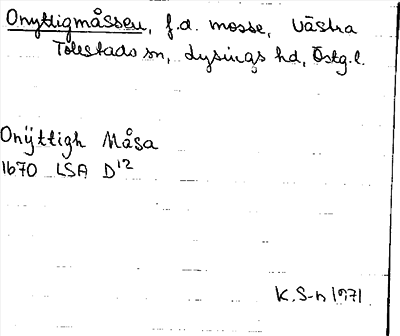 Onyttigmåssen, f.d. mosse, Västra
Tolestads sn, Lysings hd, Östg.l.
Onÿttigh Måsa
1670 LSA D12
K. S-n 1971